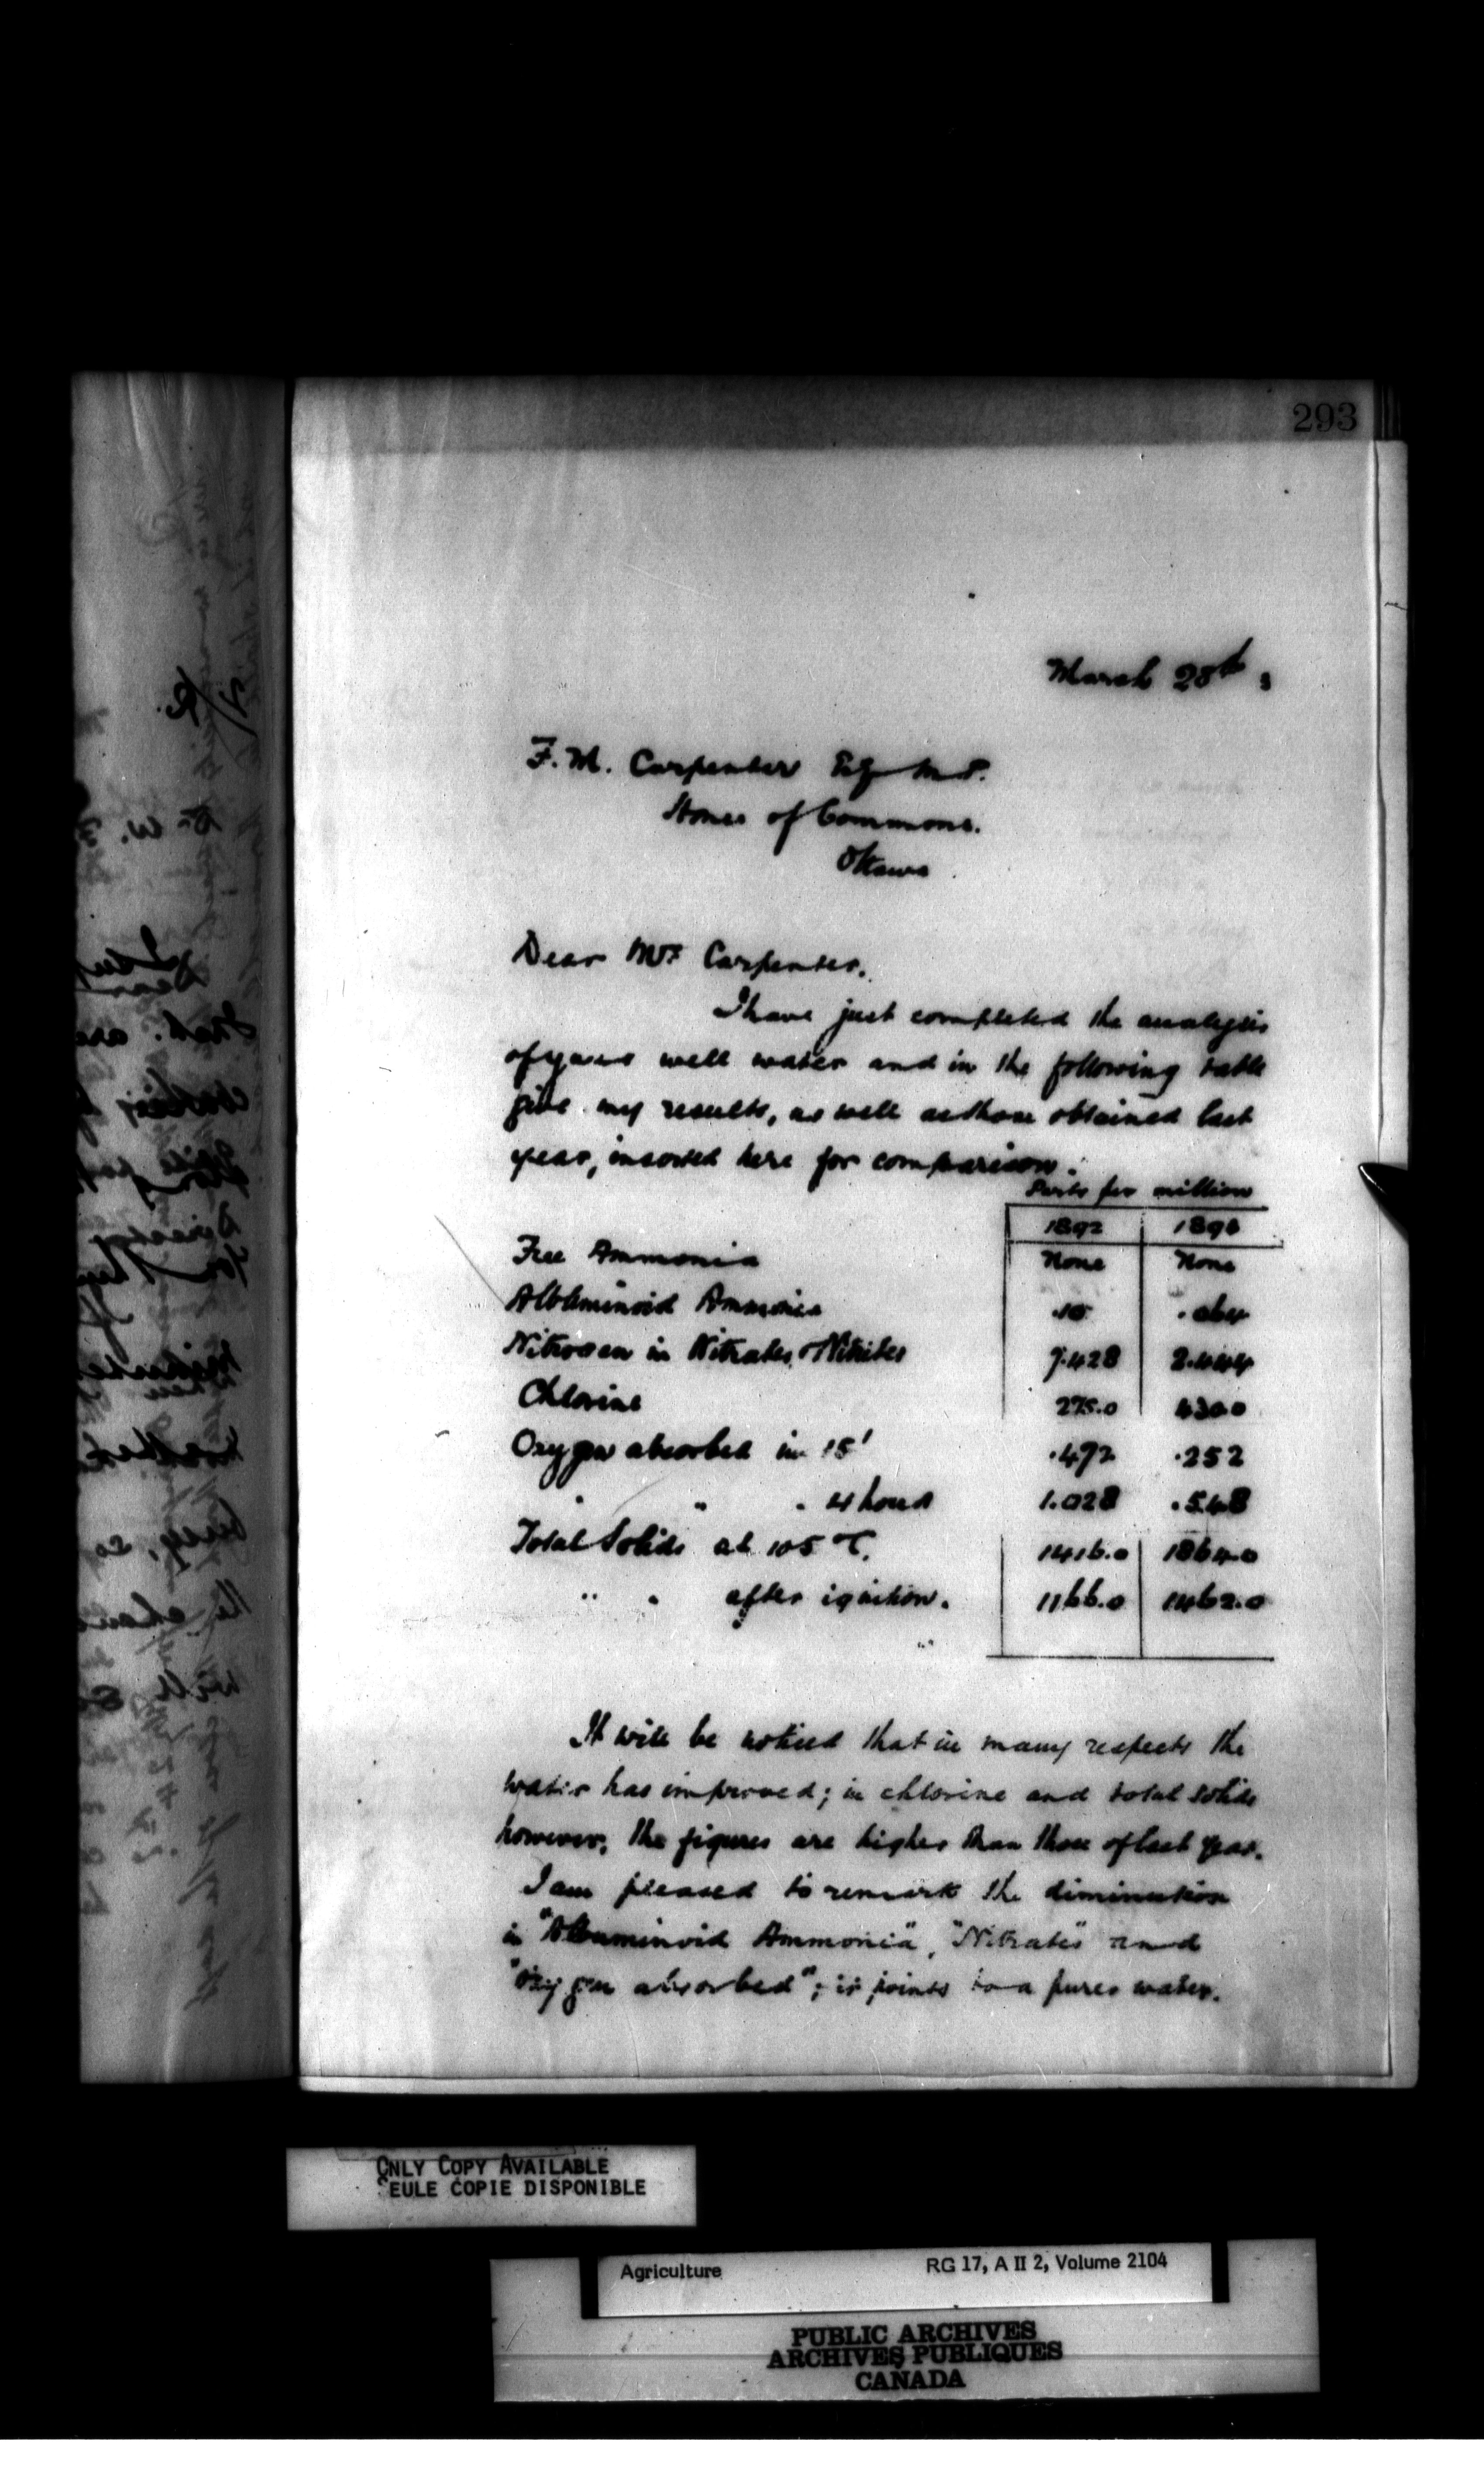 293
March 28th, 3
F. M. Carpenter Esq M.P.
House of Commons.
Ottawa
Dear Mr Carpenter.
I have just completed the analysis
of your well water and in the following table
give my results, as well as those obtained last
year, inserted here for comparison.
Parts per million
1892 1893
Free Ammonia None None
Albuminoid Ammonia .10 .064
Nitrogen in Nitrates & Nitrites 7.428 2.444
Chlorine 275.0 430.0
Oxygen absorbed in 15' .472 .252
" " " 4 hours 1.028 .548
Total Solids at 105°C. 1416.0 1864.0
" " after ignition. 1166.0 1462.0
It will be noticed that in many respects the
water has improved; in chlorine and total solids
however, the figures are higher than those of last year.
I am pleased to remark the diminution
in "Albuminoid Ammonia", "Nitrates" and
"Oxygen absorbed"; it points to a purer water.
ONLY COPY AVAILABLE
SEULE COPIE DISPONIBLE
Agriculture RG 17, A II 2, Volume 2104
PUBLIC ARCHIVES
ARCHIVES PUBLIQUES
CANADA